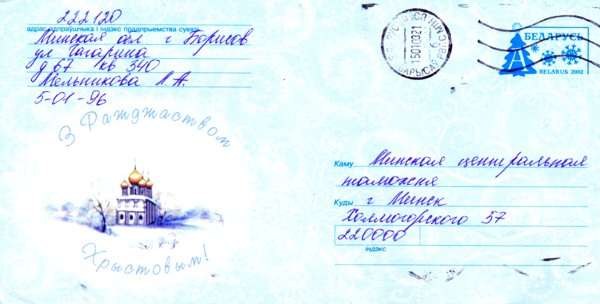 222120
адрас адпраўшчыка і індэкс прадпрыемства сувязі
Минская обл г Борисов
ул Гагарина
д 67 кв 340
Мельникова Л А.
5-01-96
З Раждаством
Хрыстовым!
БЕЛАРУСЬ
A
BELARUS 2002
Каму Минская центральная
таможня
Куды г Минск
Холмогорского 57
220000
індэкс